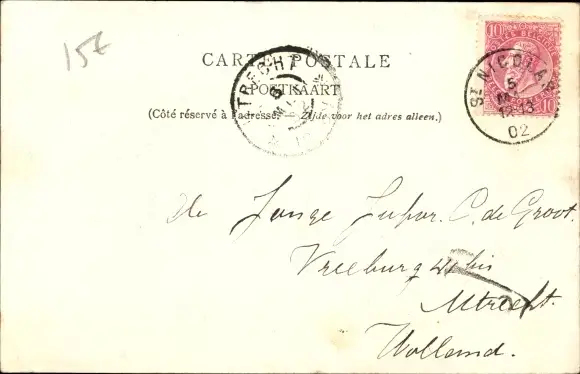 15€
CARTE POSTALE
POSTKAART
(Côté réservé à l'adresse. Zijde voor het adres alleen.)
UTRECHT
ST NICOLAS
5
02
10 10
De Jonge C. de Groot.
Vreeburg bis
Utrecht.
Holland.